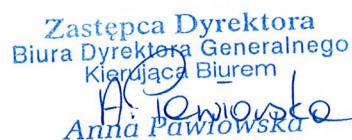 Zastępca Dyrektora
Biura Dyrektora Generalnego
Kierująca Biurem
A. Pawłowska
Anna Pawłowska